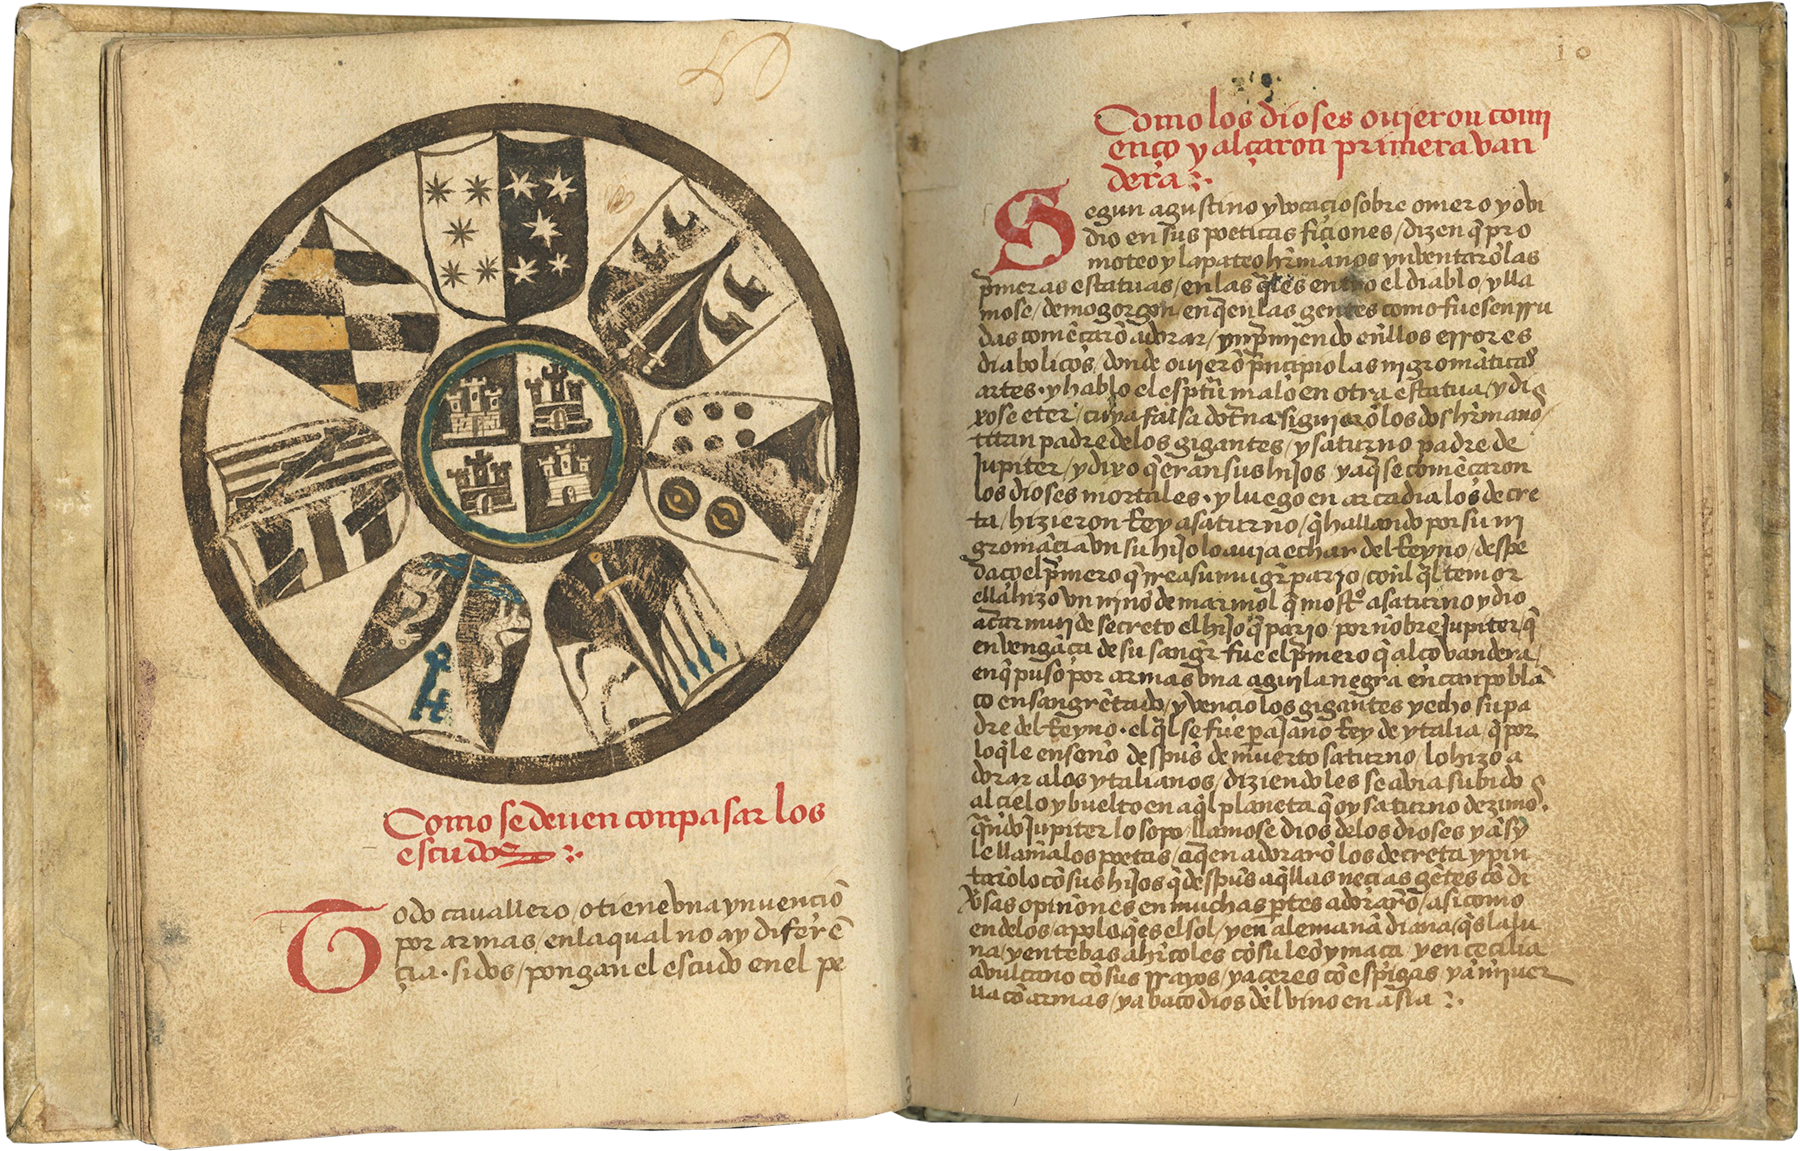 Como se deuen conpasar los
escudos
Todo cavallero / o tiene vna ynuenciõ
por armas / en la qual no ay diferẽ
çia. si dos / pongan el escudo en el pe
10
Como los dioses ouieron comi
enço y alçaron primera van
dera
Segun agustino y vocacio sobre omero y obi
dio en sus poeticas ficiones / dizen q̃ pro
moteo y lapateo hr̃manos ynventarõ las
p̃meras estatuas / en las q̃les entro el diablo / y lla
mose / demogorgon / en q̃en las gentes como fuesen rru
das comẽçarõ adorar / ynprimiendo en̄llos errores
diabolicos / donde ouierõ principio las nigromãticas
artes. y hablo el esp̃tu malo en otra estatua / y di
xose eter / cuya falsa dot̃na siguierõ los dos hr̃manos
titan padre de los gigantes / y saturno padre de
Jupiter / y dixo q̃ eran sus hijos y aq̃ se comẽçaron
los dioses mortales. y luego en arcadia los de cre
ta / hizieron rrey a saturno / q̃ hallando por su ni
gromãcia vn su hijo lo auia echar del rreyno / despe
daço el p̃mero q̃ rrea su mugr̃ pario / con̄l q̃l temor
ella hizo vn niño de marmol q̃ mostro a saturno y dio
a criar muy de secreto el hijo q̃ pario por nõbre Jupiter / q̃
en vengãça de su sangr̃ fue el p̃mero q̃ alço vandera /
en q̃ puso por armas vna aguila negra en canpo blã
co ensangrẽtado / y vencio los gigantes y echo su pa
dre del rreyno. el q̃l se fue para Jano rrey de ytalia / q̃ por
lo q̃ le enseño despũs de muerto saturno / lo hizo a
dorar a los ytalianos / diziendoles se abia subido
al cielo y buelto en aq̃l planeta q̃ oy saturno dezimos.
q̃ndo Jupiter lo sopo / llamose dios de los dioses y asy
le llamã los poetas / a q̃en adorarõ los de creta y pin
tarõlo cõ sus hijos q̃ despũs aq̃llas necias gẽtes cõ di
v̉sas opinones en muchas p̃tes adorarõ / asi como
en delos a polo q̃es el sol / y en alemaña diana / q̃s la lu
na / y en tebas a hr̃coles cõ su leõ y maça y en cecilia
a vulcano cõ sus rrayos / y a ceres cõ espigas y a miner
ua cõ armas / y a baco dios del vino en asia